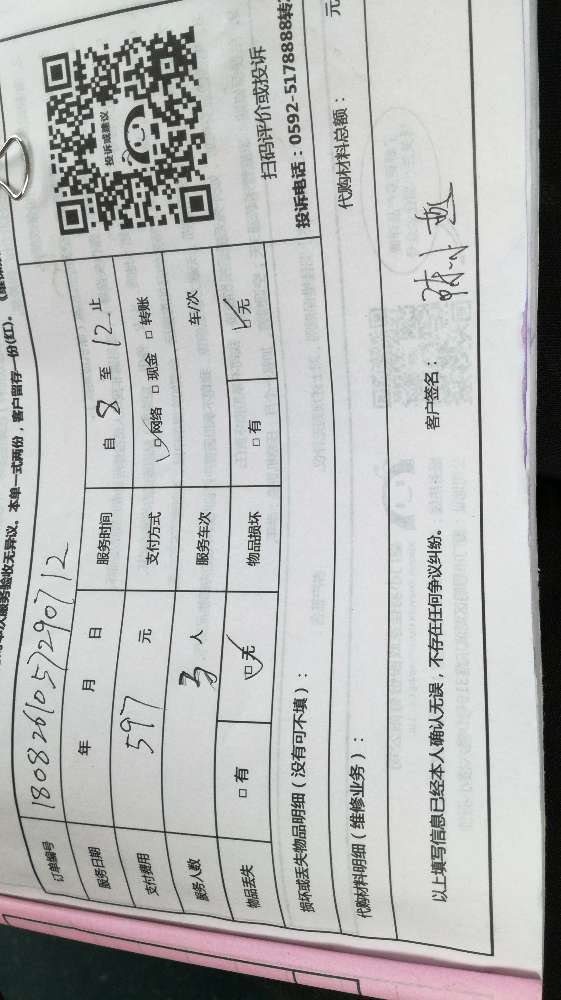 本次服务验收无异议。本单一式两份，客户留存一份(红)。
订单编号 1808261057290712
服务日期 年 月 日 服务时间 自 8 至 12 止
支付费用 597 元 支付方式 ☑网络 □现金 □转账
服务人数 3 人 服务车次 车/次
物品丢失 □有 ☑无 物品损坏 □有 ☑无
投诉或建议
扫码评价或投诉
投诉电话：0592-5178888转
损坏或丢失物品明细（没有可不填）：
代购材料明细（维修业务）： 代购材料总额： 元
以上填写信息已经本人确认无误，不存在任何争议纠纷。 客户签名：